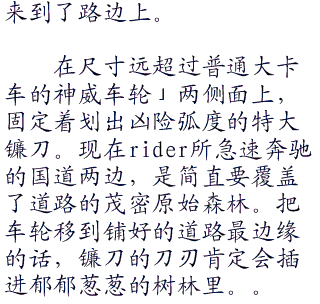 来到了路边上。
在尺寸远超过普通大卡
车的神威车轮」两侧面上，
固定着划出凶险弧度的特大
镰刀。现在rider所急速奔驰
的国道两边，是简直要覆盖
了道路的茂密原始森林。把
车轮移到铺好的道路最边缘
的话，镰刀的刀刃肯定会插
进郁郁葱葱的树林里。。